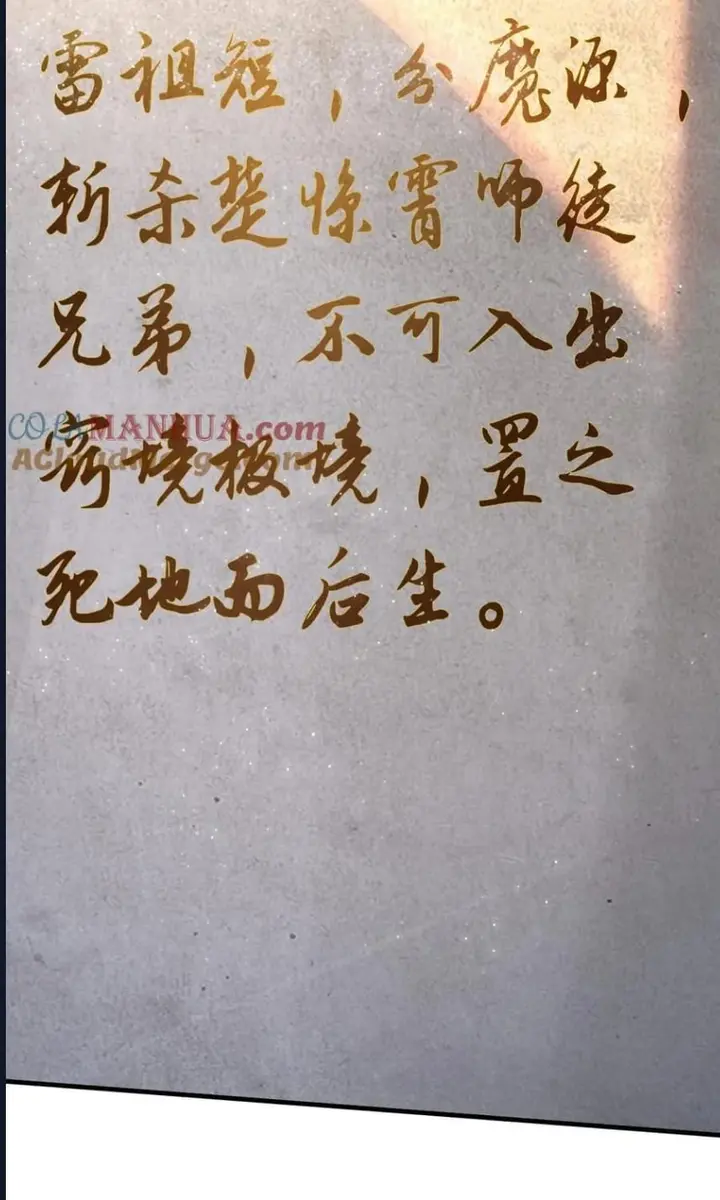 雷祖短，分魔源，
斩杀楚惊霄师徒
兄弟，不可入出
窍境板境，置之
死地而后生。
COLAMANHUA.com